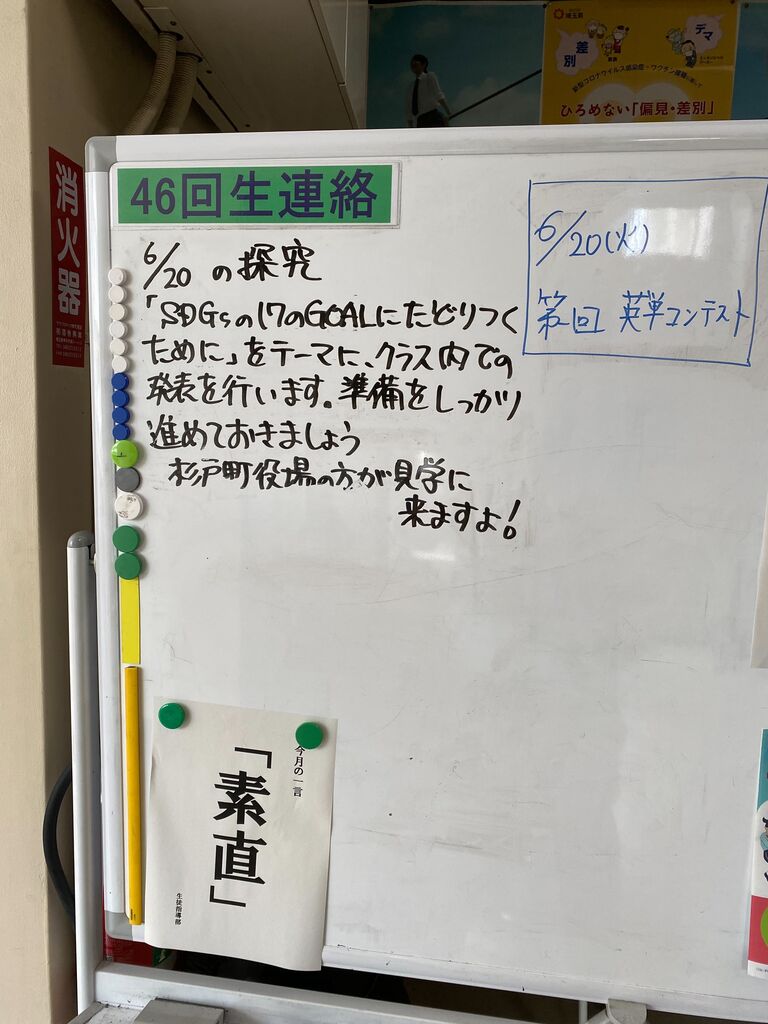 埼玉県
差別
デマ
新型コロナウイルス感染症・ワクチン接種に関して
ひろめない「偏見・差別」
消火器
46回生連絡
6/20 の探究
「SDGsの17のGOALにたどりつく
ために」をテーマに、クラス内での
発表を行います。準備をしっかり
進めておきましょう
杉戸町役場の方が見学に
来ますよ!
6/20(火)
第1回 英単コンテスト
今月の一言
「素直」
生徒指導部